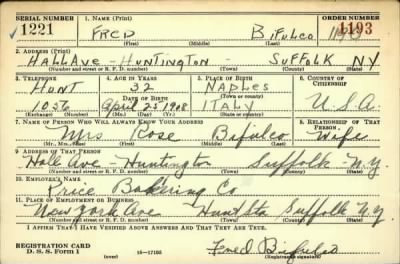 SERIAL NUMBER 1. NAME (Print) ORDER NUMBER
1221 FRED BIFULCO 1193
(First) (Middle) (Last)
2. ADDRESS (Print)
HALL AVE - HUNTINGTON - SUFFOLK NY
(Number and street or R. F. D. number) (Town) (County) (State)
3. TELEPHONE 4. AGE IN YEARS 5. PLACE OF BIRTH 6. COUNTRY OF CITIZENSHIP
HUNT 32 NAPLES
DATE OF BIRTH (Town or county)
1056 April 25 1908 ITALY U.S.A.
(Exchange) (Number) (Mo.) (Day) (Yr.) (State or country)
7. NAME OF PERSON WHO WILL ALWAYS KNOW YOUR ADDRESS 8. RELATIONSHIP OF THAT PERSON
Mrs Rose Bifulco Wife
(Mr., Mrs., Miss) (First) (Middle) (Last)
9. ADDRESS OF THAT PERSON
Hall Ave - Huntington Suffolk N.Y.
(Number and street or R. F. D. number) (Town) (County) (State)
10. EMPLOYER'S NAME
Price Co
11. PLACE OF EMPLOYMENT OR BUSINESS
New York Ave Hunt Sta Suffolk N.Y
(Number and street or R. F. D. number) (Town) (County) (State)
I AFFIRM THAT I HAVE VERIFIED ABOVE ANSWERS AND THAT THEY ARE TRUE.
REGISTRATION CARD
D. S. S. Form 1 (over) 16-17105 Fred Bifulco
(Registrant's signature)